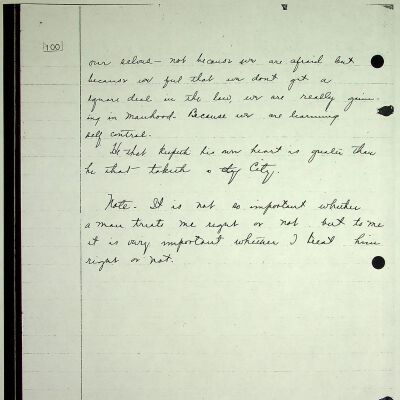 100
our selves - not because we are afraid but
because we feel that we dont get a
square deal in the law, we are really gain-
ing in manhood. Because we are learning
self control.
He that keepeth his own heart is greater than
he that taketh a City.
Note - It is not so important whether
a man treats me right or not but to me
it is very important whether I treat him
right or not.